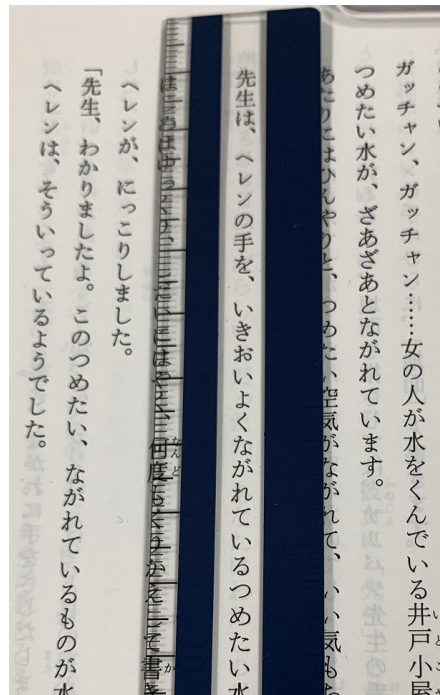 ガッチャン、ガッチャン……女の人が水をくんでいる井戸小屋
つめたい水が、ざあざあとながれています。
あたりにはひんやりと、つめたい空気がながれて、いい気もち
先生は、ヘレンの手を、いきおいよくながれているつめたい水
はじめはゆっくり、しだいにはやく、何度もくりかえして書き
ヘレンが、にっこりしました。
「先生、わかりましたよ。このつめたい、ながれているものが水
ヘレンは、そういっているようでした。